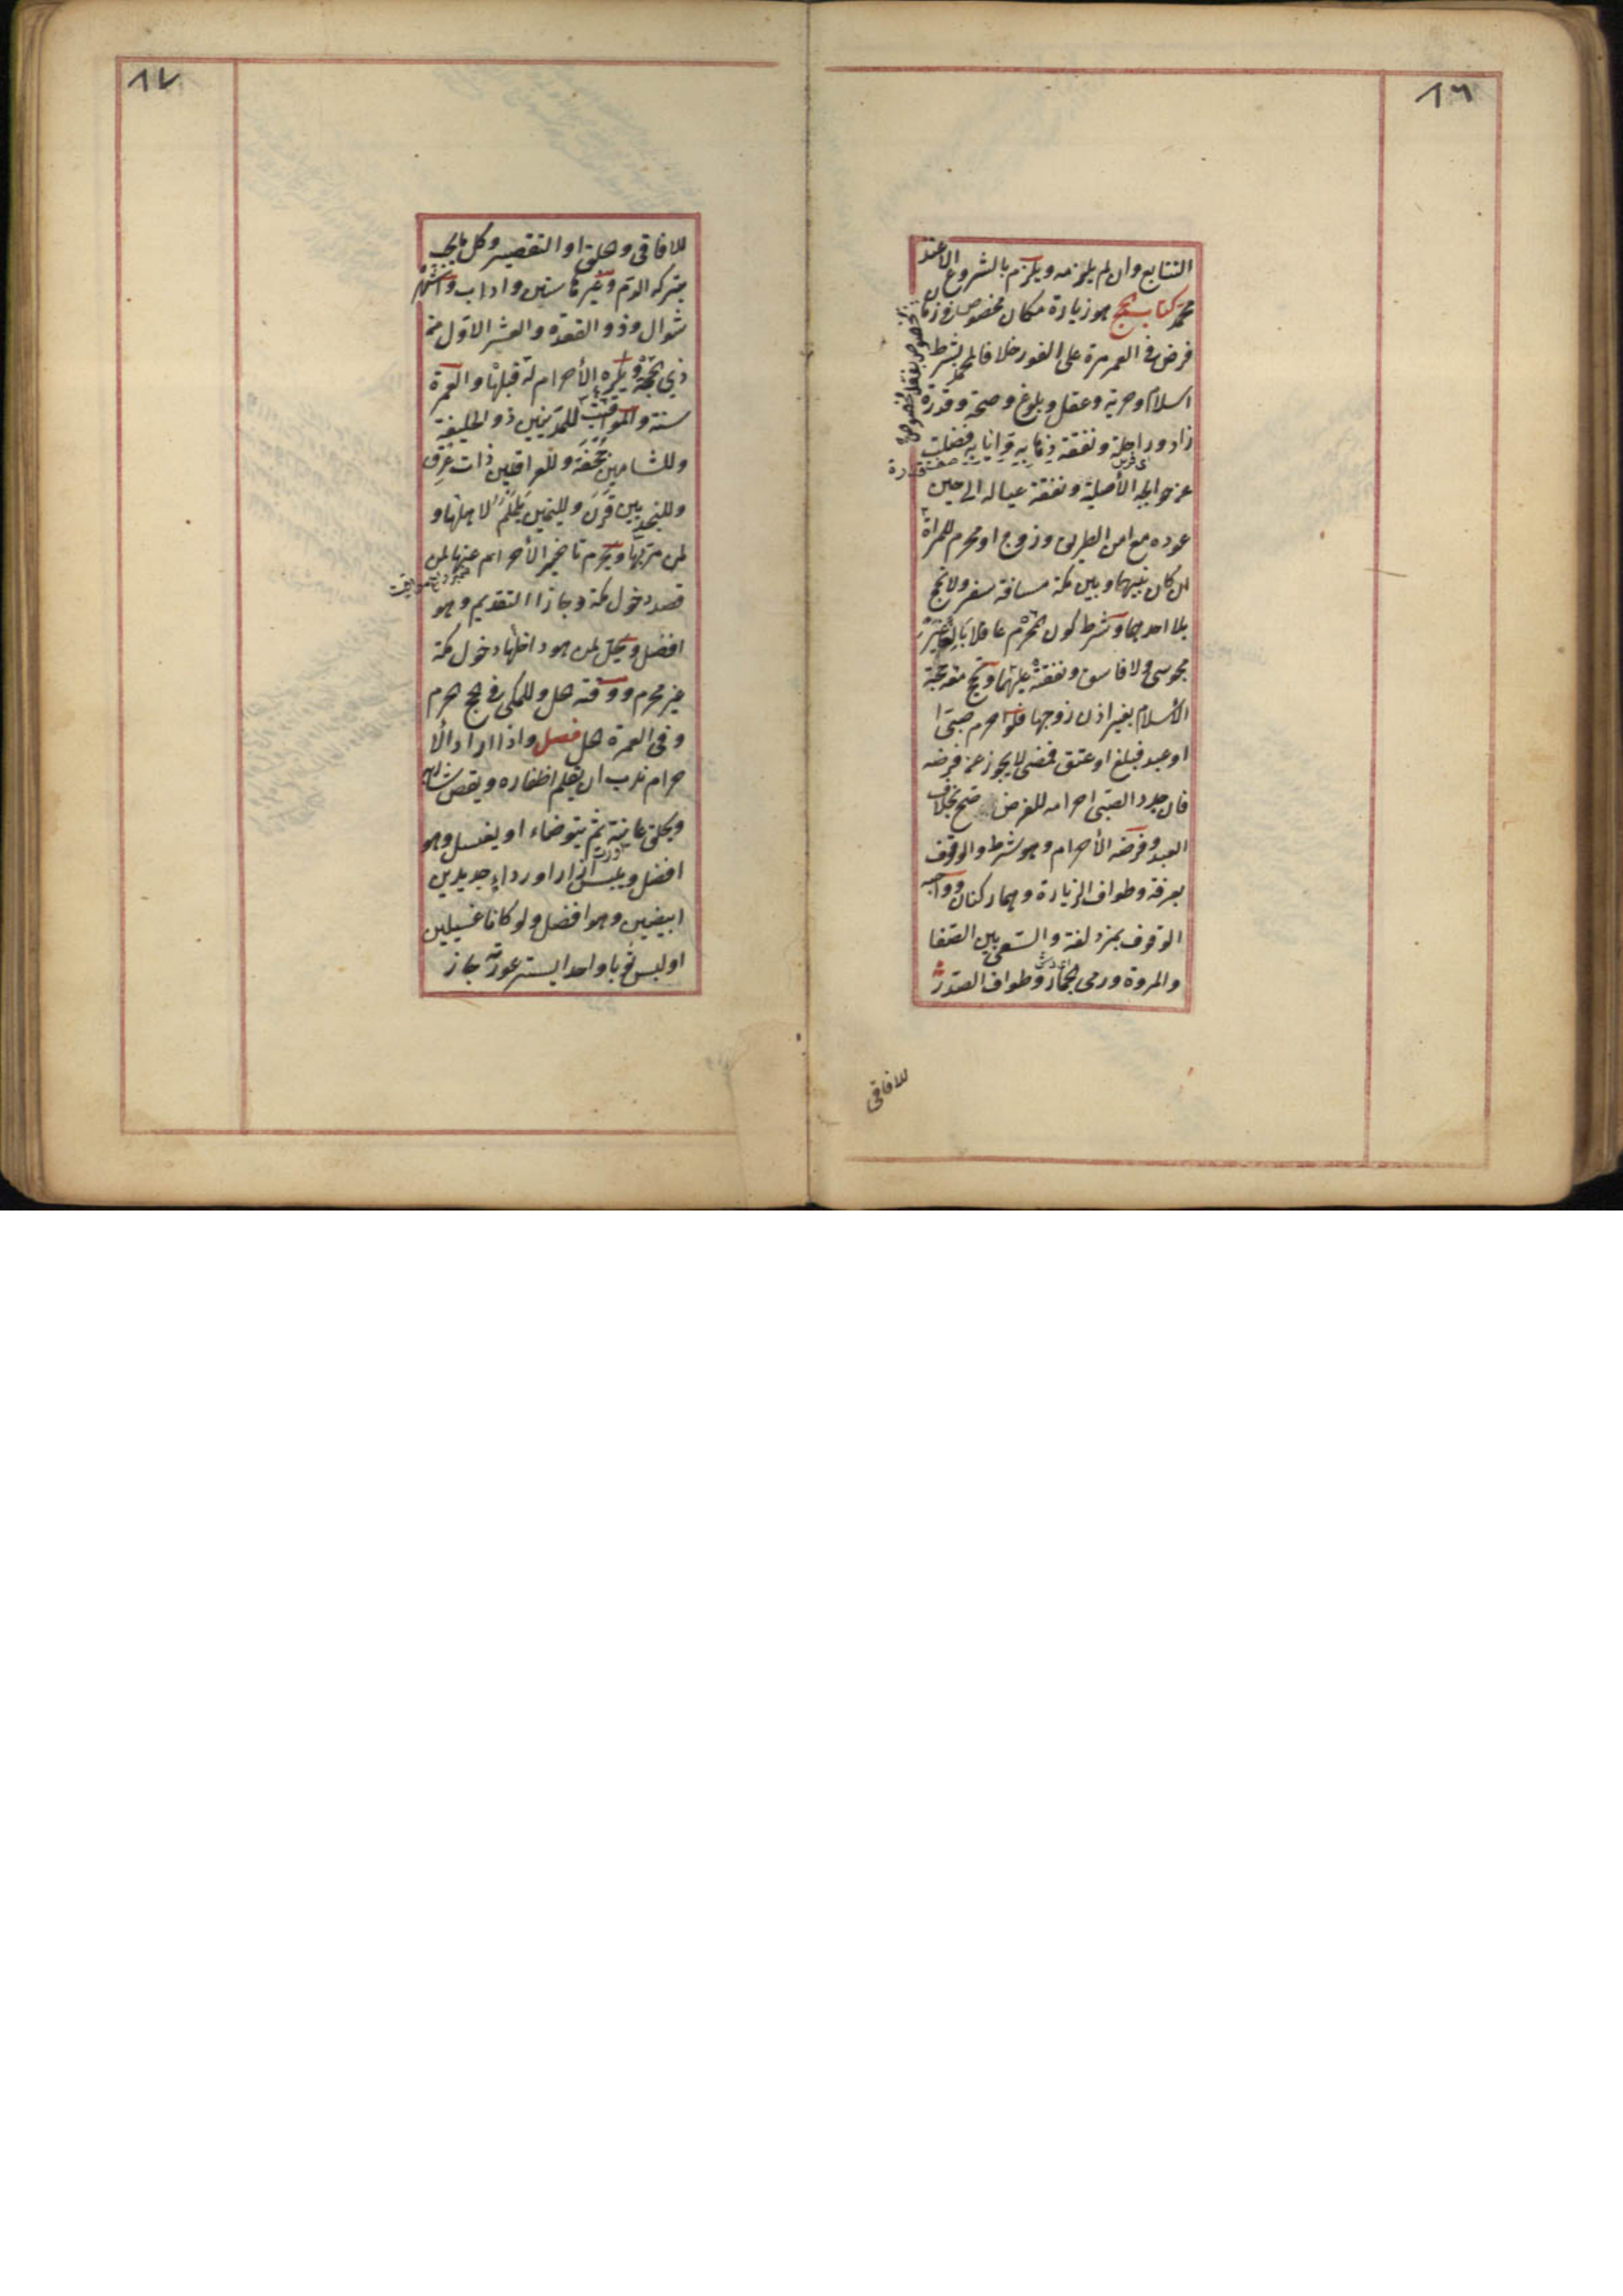 ٨٦
التتابع وان لم يلتزمه ويلزم بالشروع الا عند
محمد كتاب الحج هو زيارة مكان مخصوص في زمان
مخصوص بفعل مخصوص
فرض في العمر مرة على الفور خلافا لمحمد بشرط
اسلام وحرية وعقل وبلوغ وصحة وقدرة
زاد وراحلة ونفقة ذهابه وايابه فضلت
عن حوايجه الأصلية ونفقة عياله الى حين
عوده مع امن الطريق وزوج او محرم للمرأة
ان كان بينها وبين مكة مسافة سفر ولا تحج
بلا احدهما وشرط كون المحرم عاقلا بالغا غير
مجوسى ولا فاسق ونفقته عليها وتحج معه حجة
الأسلام بغير اذن زوجها فلو احرم صبى
او عبد فبلغ او عتق فمضى لا يجوز عن فرضه
فان جدد الصبى احرامه للفرض صح بخلاف
العبد وفرضه الأحرام وهو شرط والوقوف
بعرفة وطواف الزيارة وهما ركنان وواجبه
الوقوف بمزدلفة والسعى بين الصفا
والمروة ورمى الجمار وطواف الصدر
للافاقى
٨٧
للافاقى وحلق او التقصير وكل ما يجب
بتركه الدم وغيرها سنن واداب واشهره
شوال وذو القعدة والعشر الاول من
ذي الحجة ويكره الأحرام له قبلها والعمرة
سنة والمواقيت للمدنيين ذو الحليفة
وللشاميين جحفة وللعراقيين ذات عرق
وللنجديين قرن ولليمنين يلملم لاهلها و
لمن مر بها ويحرم تاخير الأحرام عنها لمن
قصد دخول مكة وجاز التقديم وهو
افضل ويحل لمن هو داخلها دخول مكة
غير محرم ووقته حل وللمكى في الحج حرم
وفي العمرة حل فصل واذا اراد الأ
حرام ندب ان يقلم اظفاره ويقص شاربه
ويحلق عانته ثم يتوضاء او يغسل وهو
افضل ويلبس ازار او رداء جديدين
ابيضين وهو افضل ولو كانا غسيلين
او لبس ثوبا واحدا يستر عورته جاز